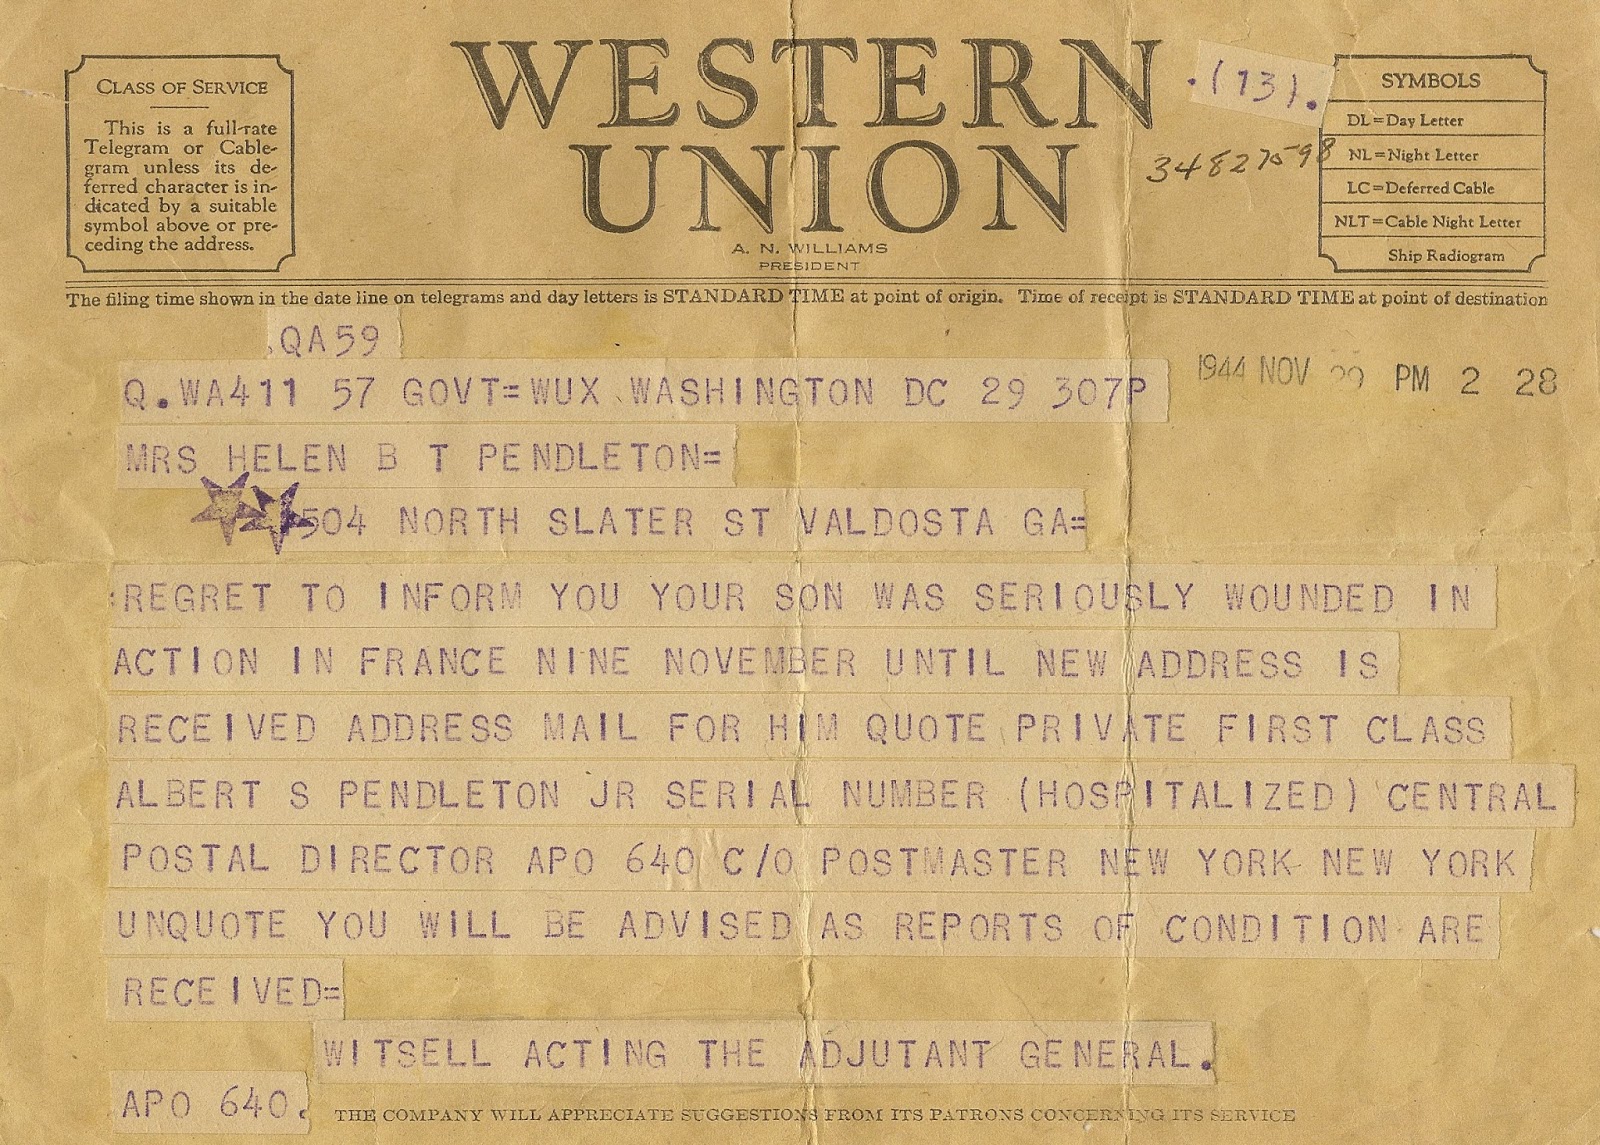 WESTERN
UNION
A. N. WILLIAMS
PRESIDENT
CLASS OF SERVICE
This is a full-rate
Telegram or Cable-
gram unless its de-
ferred character is in-
dicated by a suitable
symbol above or pre-
ceding the address.
.(13).
34827598
SYMBOLS
DL=Day Letter
NL=Night Letter
LC=Deferred Cable
NLT=Cable Night Letter
Ship Radiogram
The filing time shown in the date line on telegrams and day letters is STANDARD TIME at point of origin. Time of receipt is STANDARD TIME at point of destination
.QA59
Q.WA411 57 GOVT=WUX WASHINGTON DC 29 307P
1944 NOV PM 2 28
MRS HELEN B T PENDLETON=
504 NORTH SLATER ST VALDOSTA GA=
:REGRET TO INFORM YOU YOUR SON WAS SERIOUSLY WOUNDED IN
ACTION IN FRANCE NINE NOVEMBER UNTIL NEW ADDRESS IS
RECEIVED ADDRESS MAIL FOR HIM QUOTE PRIVATE FIRST CLASS
ALBERT S PENDLETON JR SERIAL NUMBER (HOSPITALIZED) CENTRAL
POSTAL DIRECTOR APO 640 C/O POSTMASTER NEW YORK NEW YORK
UNQUOTE YOU WILL BE ADVISED AS REPORTS OF CONDITION ARE
RECEIVED=
WITSELL ACTING THE ADJUTANT GENERAL.
APO 640.
THE COMPANY WILL APPRECIATE SUGGESTIONS FROM ITS PATRONS CONCERNING ITS SERVICE